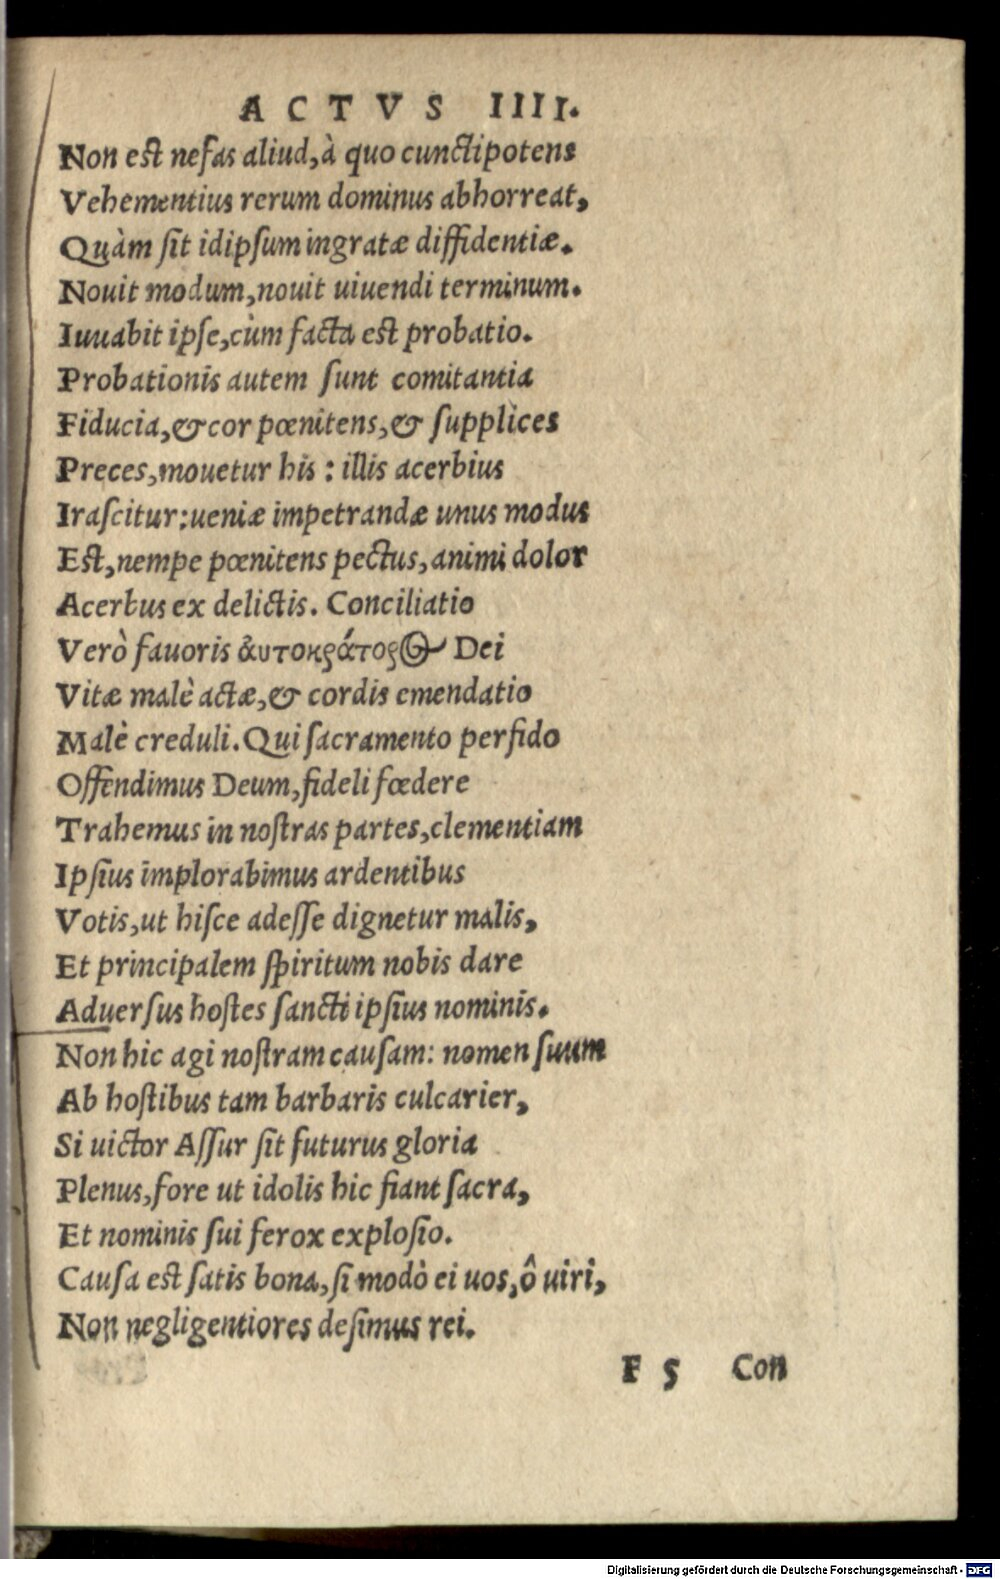 ACTVS IIII.
Non est nefas aliud, à quo cunctipotens
Vehementius rerum dominus abhorreat,
Quàm sit idipsum ingratæ diffidentiæ.
Nouit modum, nouit uiuendi terminum.
Iuuabit ipse, cùm facta est probatio.
Probationis autem sunt comitantia
Fiducia, & cor pœnitens, & supplices
Preces, mouetur his : illis acerbius
Irascitur: ueniæ impetrandæ unus modus
Est, nempe pœnitens pectus, animi dolor
Acerbus ex delictis. Conciliatio
Verò fauoris ἀυτοκράτορος Dei
Vitæ malè actæ, & cordis emendatio
Malè creduli. Qui sacramento perfido
Offendimus Deum, fideli fœdere
Trahemus in nostras partes, clementiam
Ipsius implorabimus ardentibus
Votis, ut hisce adesse dignetur malis,
Et principalem spiritum nobis dare
Aduersus hostes sancti ipsius nominis.
Non hic agi nostram causam: nomen suum
Ab hostibus tam barbaris culcarier,
Si uictor Assur sit futurus gloria
Plenus, fore ut idolis hic fiant sacra,
Et nominis sui ferox explosio.
Causa est satis bona, si modò ei uos, ô uiri,
Non negligentiores desimus rei.
F 5 Con
Digitalisierung gefördert durch die Deutsche Forschungsgemeinschaft - DFG